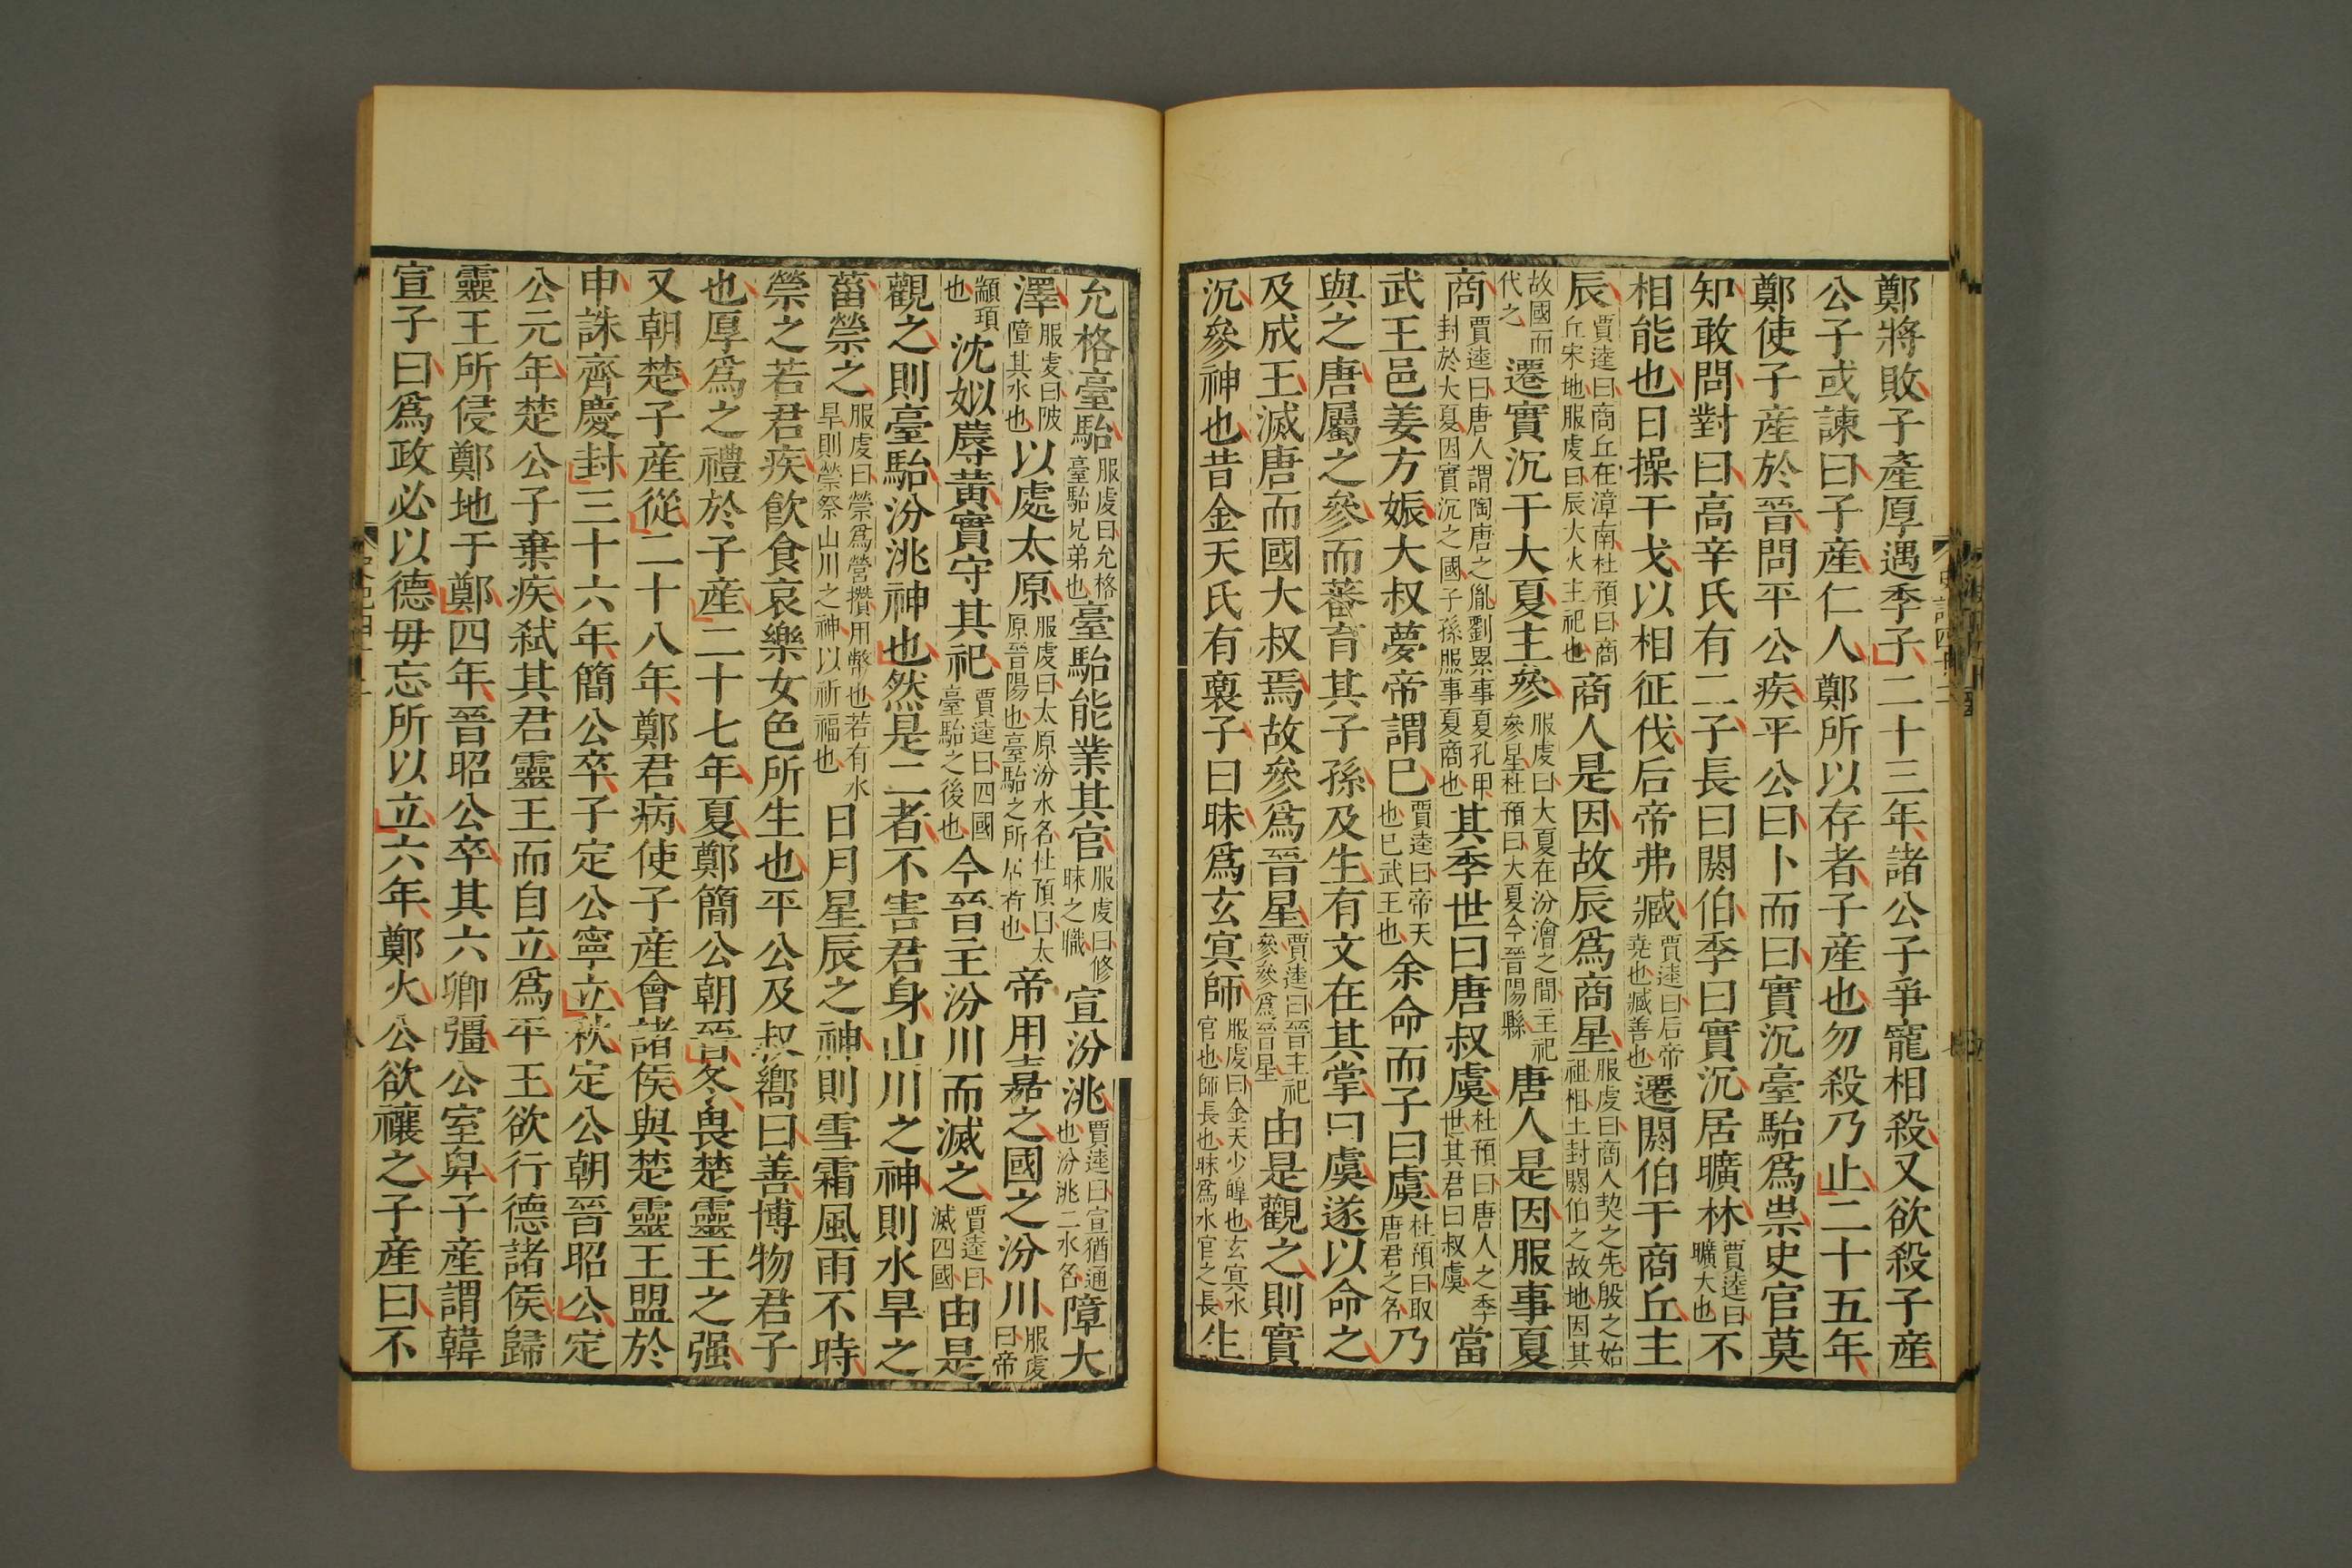 鄭將敗子產厚遇季子二十三年諸公子爭寵相殺又欲殺子產
公子或諫曰子產仁人鄭所以存者子產也勿殺乃止二十五年
鄭使子產於晉問平公疾平公曰卜而曰實沉臺駘爲祟史官莫
知敢問對曰高辛氏有二子長曰閼伯季曰實沉居曠林賈逵曰曠大也不
相能也日操干戈以相征伐后帝弗臧賈逵曰后帝堯也臧善也遷閼伯于商丘主
辰賈逵曰商丘在漳南杜預曰商丘宋地服虔曰辰大火主祀也商人是因故辰爲商星服虔曰商人契之先殷之始祖相土封閼伯之故地因其
故國而代之遷實沉于大夏主參服虔曰大夏在汾澮之間主祀參星杜預曰大夏今晉陽縣唐人是因服事夏
商賈逵曰唐人謂陶唐之胤劉累事夏孔甲封於大夏因實沉之國子孫服事夏商也其季世曰唐叔虞杜預曰唐人之季世其君曰叔虞當
武王邑姜方娠大叔夢帝謂已賈逵曰帝天也已武王也余命而子曰虞杜預曰取唐君之名乃
與之唐屬之參而蕃育其子孫及生有文在其掌曰虞遂以命之
及成王滅唐而國大叔焉故參爲晉星賈逵曰晉主祀參參爲晉星由是觀之則實
沉參神也昔金天氏有裔子曰昧爲玄冥師服虔曰金天少皥也玄冥水官也師長也昧爲水官之長生
允格臺駘服虔曰允格臺駘兄弟也臺駘能業其官服虔曰修昧之職宣汾洮賈逵曰宣猶通也汾洮二水名障大
澤服虔曰陂障其水也以處太原服虔曰太原汾水名杜預曰太原晉陽也臺駘之所居者也帝用嘉之國之汾川服虔曰帝
顓頊也沈姒蓐黃實守其祀賈逵曰四國臺駘之後也今晉主汾川而滅之賈逵曰滅四國由是
觀之則臺駘汾洮神也然是二者不害君身山川之神則水旱之
菑禜之服虔曰禜爲營攢用幣也若有水旱則禜祭山川之神以祈福也日月星辰之神則雪霜風雨不時
禜之若君疾飮食哀樂女色所生也平公及叔嚮曰善博物君子
也厚爲之禮於子產二十七年夏鄭簡公朝晉冬畏楚靈王之强
又朝楚子產從二十八年鄭君病使子產會諸侯與楚靈王盟於
申誅齊慶封三十六年簡公卒子定公寧立秋定公朝晉昭公定
公元年楚公子棄疾弑其君靈王而自立爲平王欲行德諸侯歸
靈王所侵鄭地于鄭四年晉昭公卒其六卿彊公室卑子產謂韓
宣子曰爲政必以德毋忘所以立六年鄭火公欲禳之子產曰不